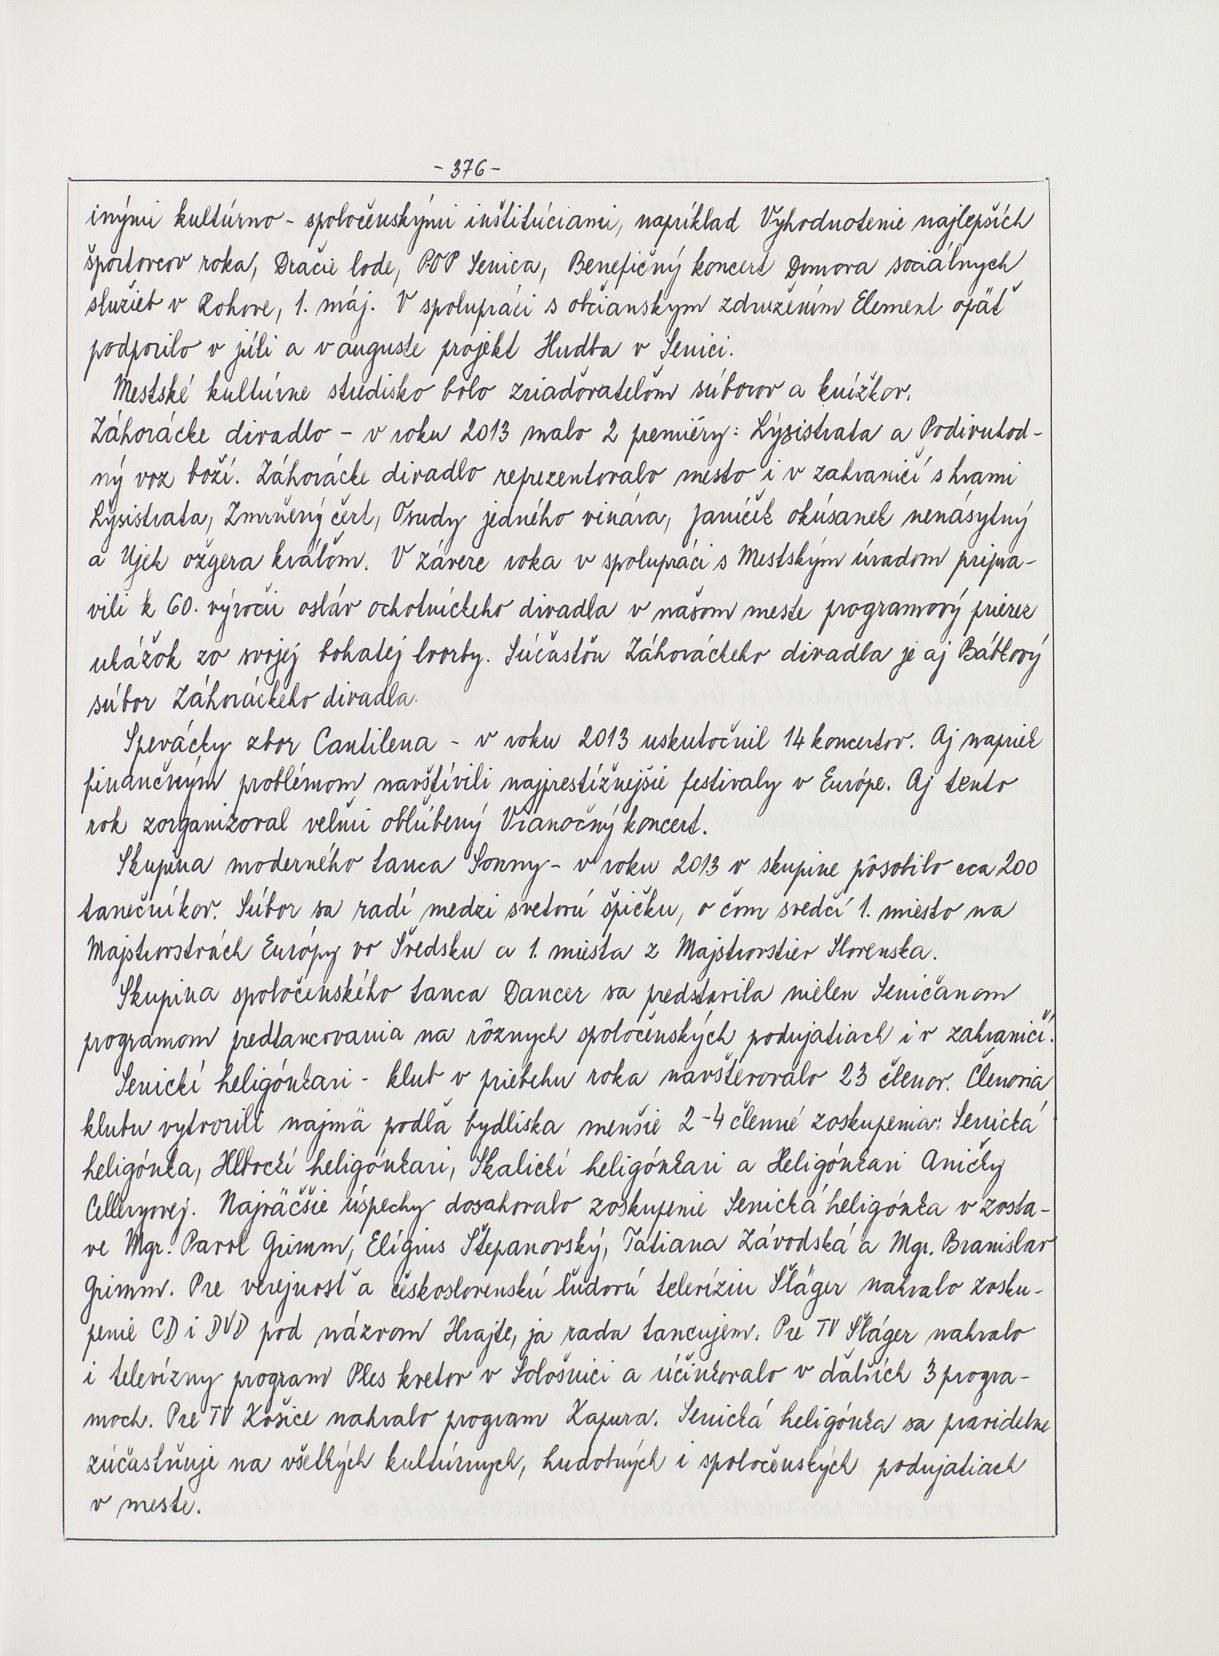 - 376 -
inými kultúrno - spoločenskými inštitúciami, napríklad Vyhodnotenie najlepších
športovcov roka, Dračie lode, POP Senica, Benefičný koncert Domova sociálnych
služieb v Rohove, 1. máj. V spolupráci s občianskym združením Element opäť
podporilo v júli a v auguste projekt Hudba v Senici.
Mestské kultúrne stredisko bolo zriaďovateľom súborov a krúžkov.
Záhorácke divadlo - v roku 2013 malo 2 premiéry: Lýsistrata a Podivuhod-
ný voz boží. Záhorácke divadlo reprezentovalo mesto i v zahraničí s hrami
Lýsistrata, Zmrňený čert, Osudy jedného vinára, Janíček okúsanek nenásytný
a Ujek ožgera kráľom. V závere roka v spolupráci s Mestským úradom pripra-
vili k 60. výročiu osláv ochotníckeho divadla v našom meste programový prierez
ukážok zo svojej bohatej tvorby. Súčasťou Záhoráckeho divadla je aj Bábkový
súbor Záhoráckeho divadla.
Spevácky zbor Cantilena - v roku 2013 uskutočnil 14 koncertov. Aj napriek
finančným problémom navštívili najprestížnejšie festivaly v Európe. Aj tento
rok zorganizoval veľmi obľúbený Vianočný koncert.
Skupina moderného tanca Sonny - v roku 2013 v skupine pôsobilo cca 200
tanečníkov. Súbor sa radí medzi svetovú špičku, o čom svedčí 1. miesto na
Majstrovstvách Európy vo Švédsku a 1. miesta z Majstrovstiev Slovenska.
Skupina spoločenského tanca Dancer sa predstavila nielen Seničanom
programom predtancovania na rôznych spoločenských podujatiach i v zahraničí.
Senickí heligónkari - klub v priebehu roka navštevovalo 23 členov. Členovia
klubu vytvorili najmä podľa bydliska menšie 2-4 členné zoskupenia: Senická
heligónka, Hlbockí heligónkari, Skalickí heligónkari a Heligónkari Aničky
Celleryovej. Najväčšie úspechy dosahovalo zoskupenie Senická heligónka v zosta-
ve Mgr. Pavol Grimm, Elígius Štepanovský, Tatiana Závodská a Mgr. Branislav
Grimm. Pre verejnosť a československú ľudovú televíziu Šláger nahralo zosku-
penie CD i DVD pod názvom Hrajte, ja rada tancujem. Pre TV Šláger nahralo
i televízny program Ples kvetov v Sološnici a účinkovalo v ďalších 3 progra-
moch. Pre TV Košice nahralo program Kapura. Senická heligónka sa pravidelne
zúčastňuje na všetkých kultúrnych, hudobných i spoločenských podujatiach
v meste.